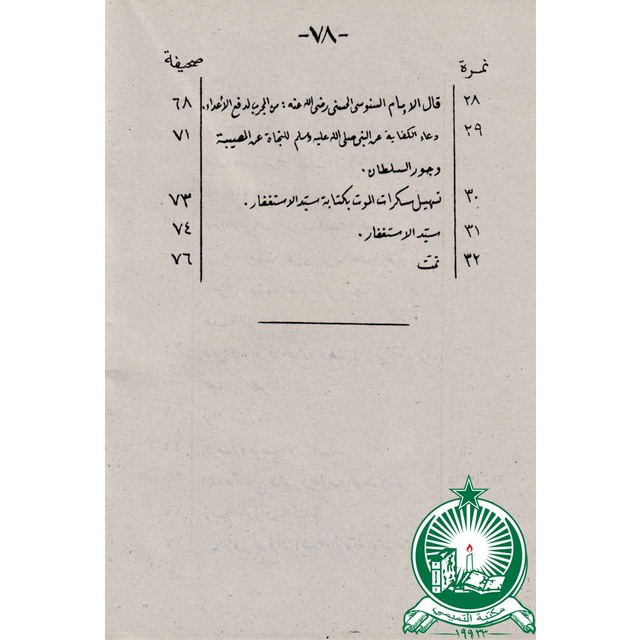 -٧٨-
نمرة صحيفة
٢٨ قال الإمام السنوسي الحسني رضى الله عنه : من المجرب لدفع الأعداء. ٦٨
٢٩ دعاء الكفاية عن النبي صلى الله عليه وسلم للنجاة عن المصيبة ٧١
وجور السلطان.
٣٠ تسهيل سكرات الموت بكتابة سيّد الاستغفار. ٧٣
٣١ سيّد الاستغفار. ٧٤
٣٢ تمت ٧٦
مكتبة التميمي
١٩٩٣٣